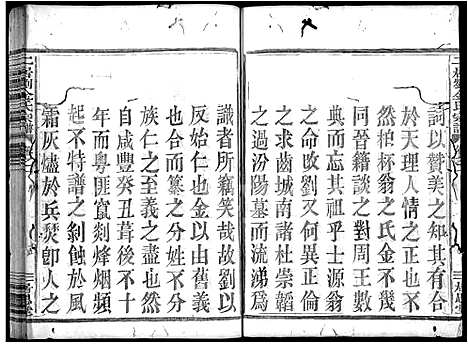 詞以贊美之知其有合
於天理人情之正也不
然柏杯翁之氏金不可
同晉籍談之對周王數
典而忘其祖乎士源翁
之求命改劉又何異正倫
之求齒城南諸杜崇韜
之過汾陽墓而流涕爲
識者所竊笑哉故劉以
反始仁也金以由舊義
也合而篡之分姓不分
族仁之至義之盡也第
自咸豐癸丑葺修以來
中更粵匪竄剡烽烟頻
起不特譜之剝蝕於風
霜灰燼於兵燹即人之